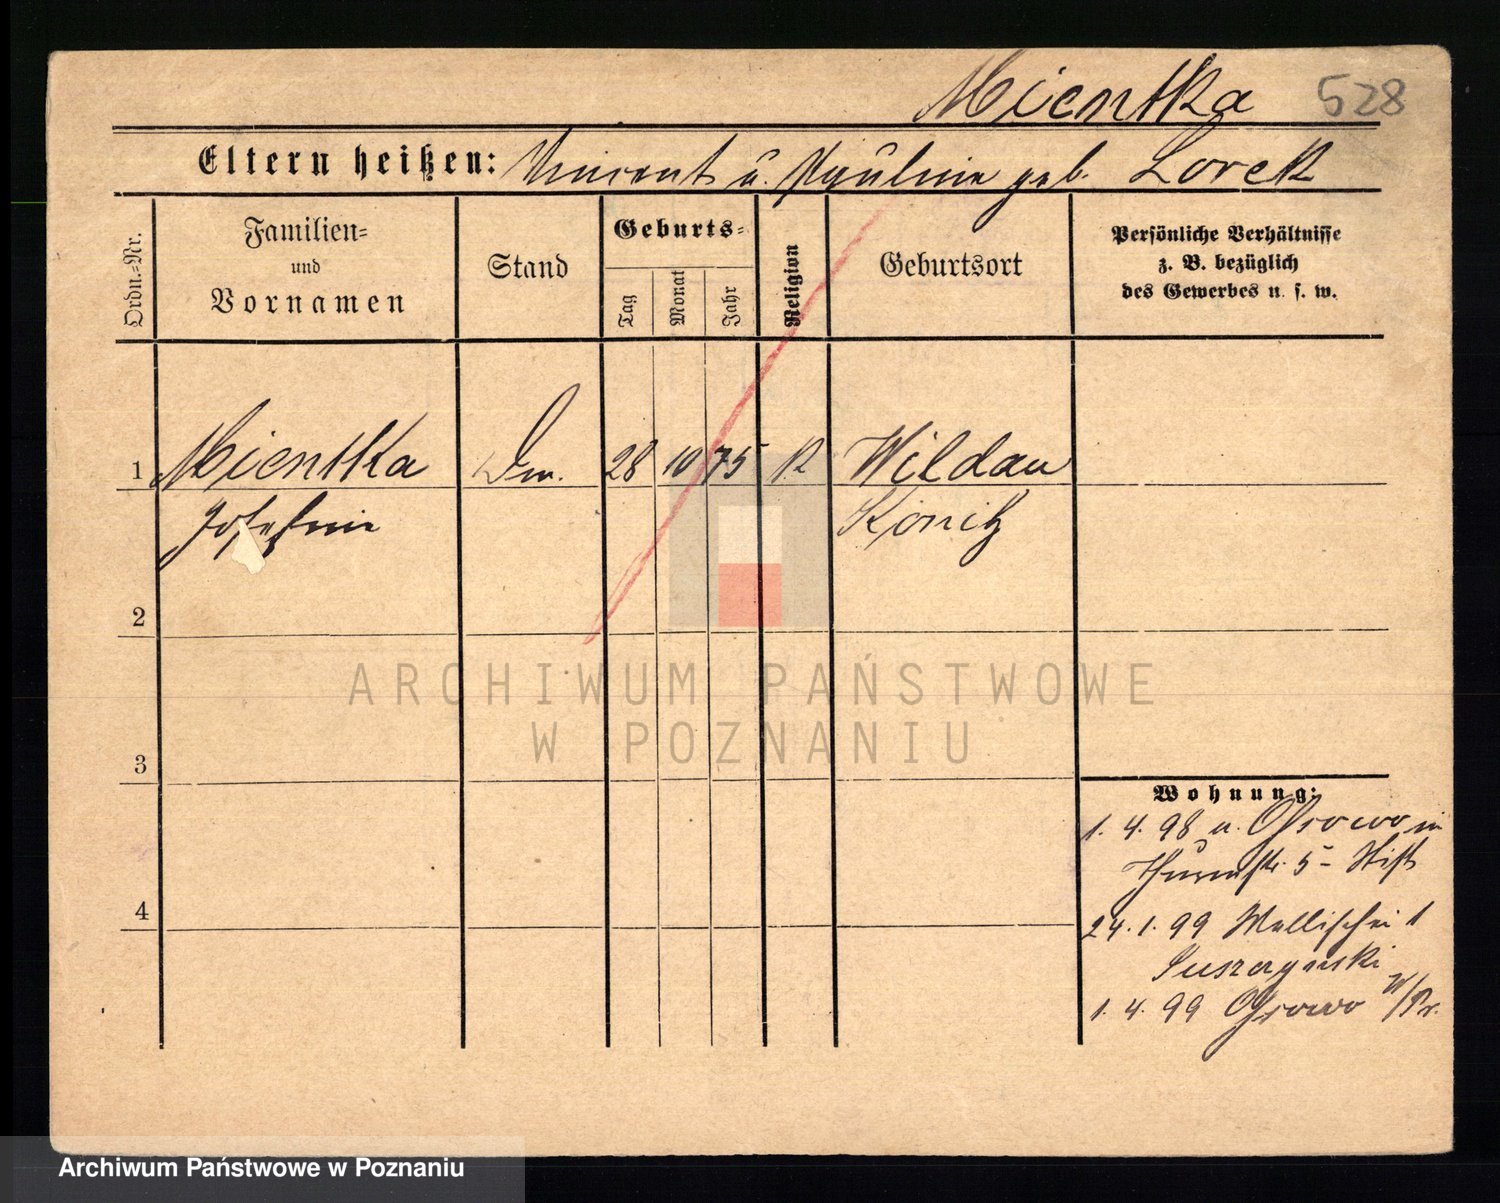 Mientka 528
Eltern heißen: Vincent u. Pauline geb. Lorek
Ordn.-Nr.
Familien-
und
Vornamen
Stand
Geburts-
Tag
Monat
Jahr
Religion
Geburtsort
Persönliche Verhältnisse
z. B. bezüglich
des Gewerbes u. s. w.
1 Mientka 28 10 75 R Wildau
Josefine Konitz
2
3
4
Wohnung:
1. 4. 98 u. Ossowo in
Thurmstr. 5 - Stift
24. 1. 99 Wallischei 1
1. 4. 99 Ossowo W/Pr.
ARCHIWUM PAŃSTWOWE
W POZNANIU
Archiwum Państwowe w Poznaniu